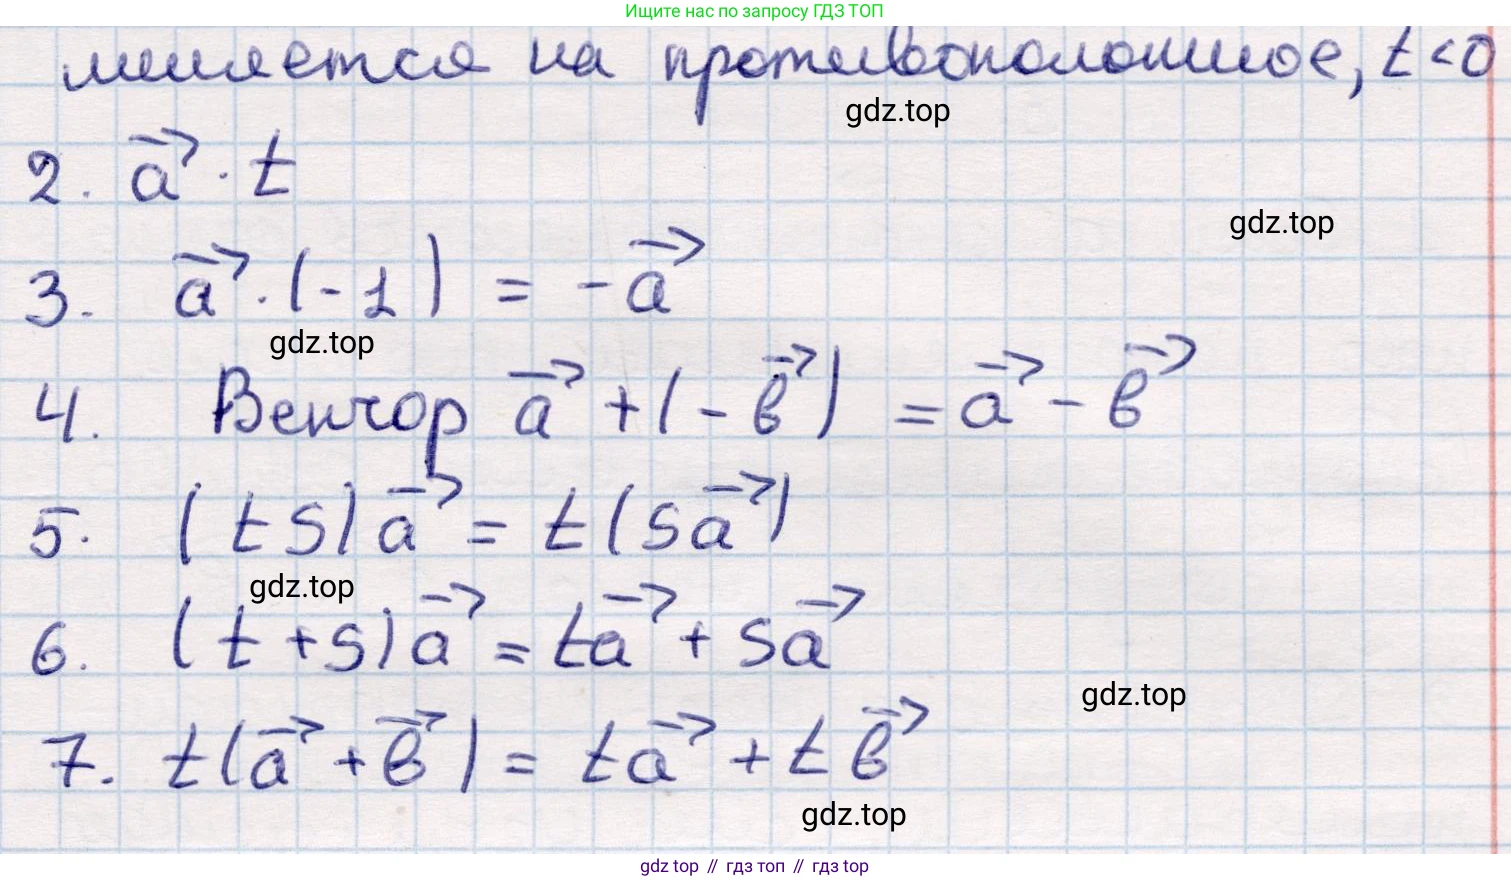 Ищите нас по запросу ГДЗ ТОП
меняется на противоположное, t<0
gdz.top
2. a⃗ · t
gdz.top
3. a⃗ · (-1) = -a⃗
gdz.top
4. Вектор a⃗ + (-в⃗) = a⃗ - в⃗
5. (ts)a⃗ = t(sa⃗)
gdz.top
6. (t+s)a⃗ = ta⃗ + sa⃗
gdz.top
7. t(a⃗ + в⃗) = ta⃗ + tв⃗
gdz.top
gdz top // гдз топ // gdz top